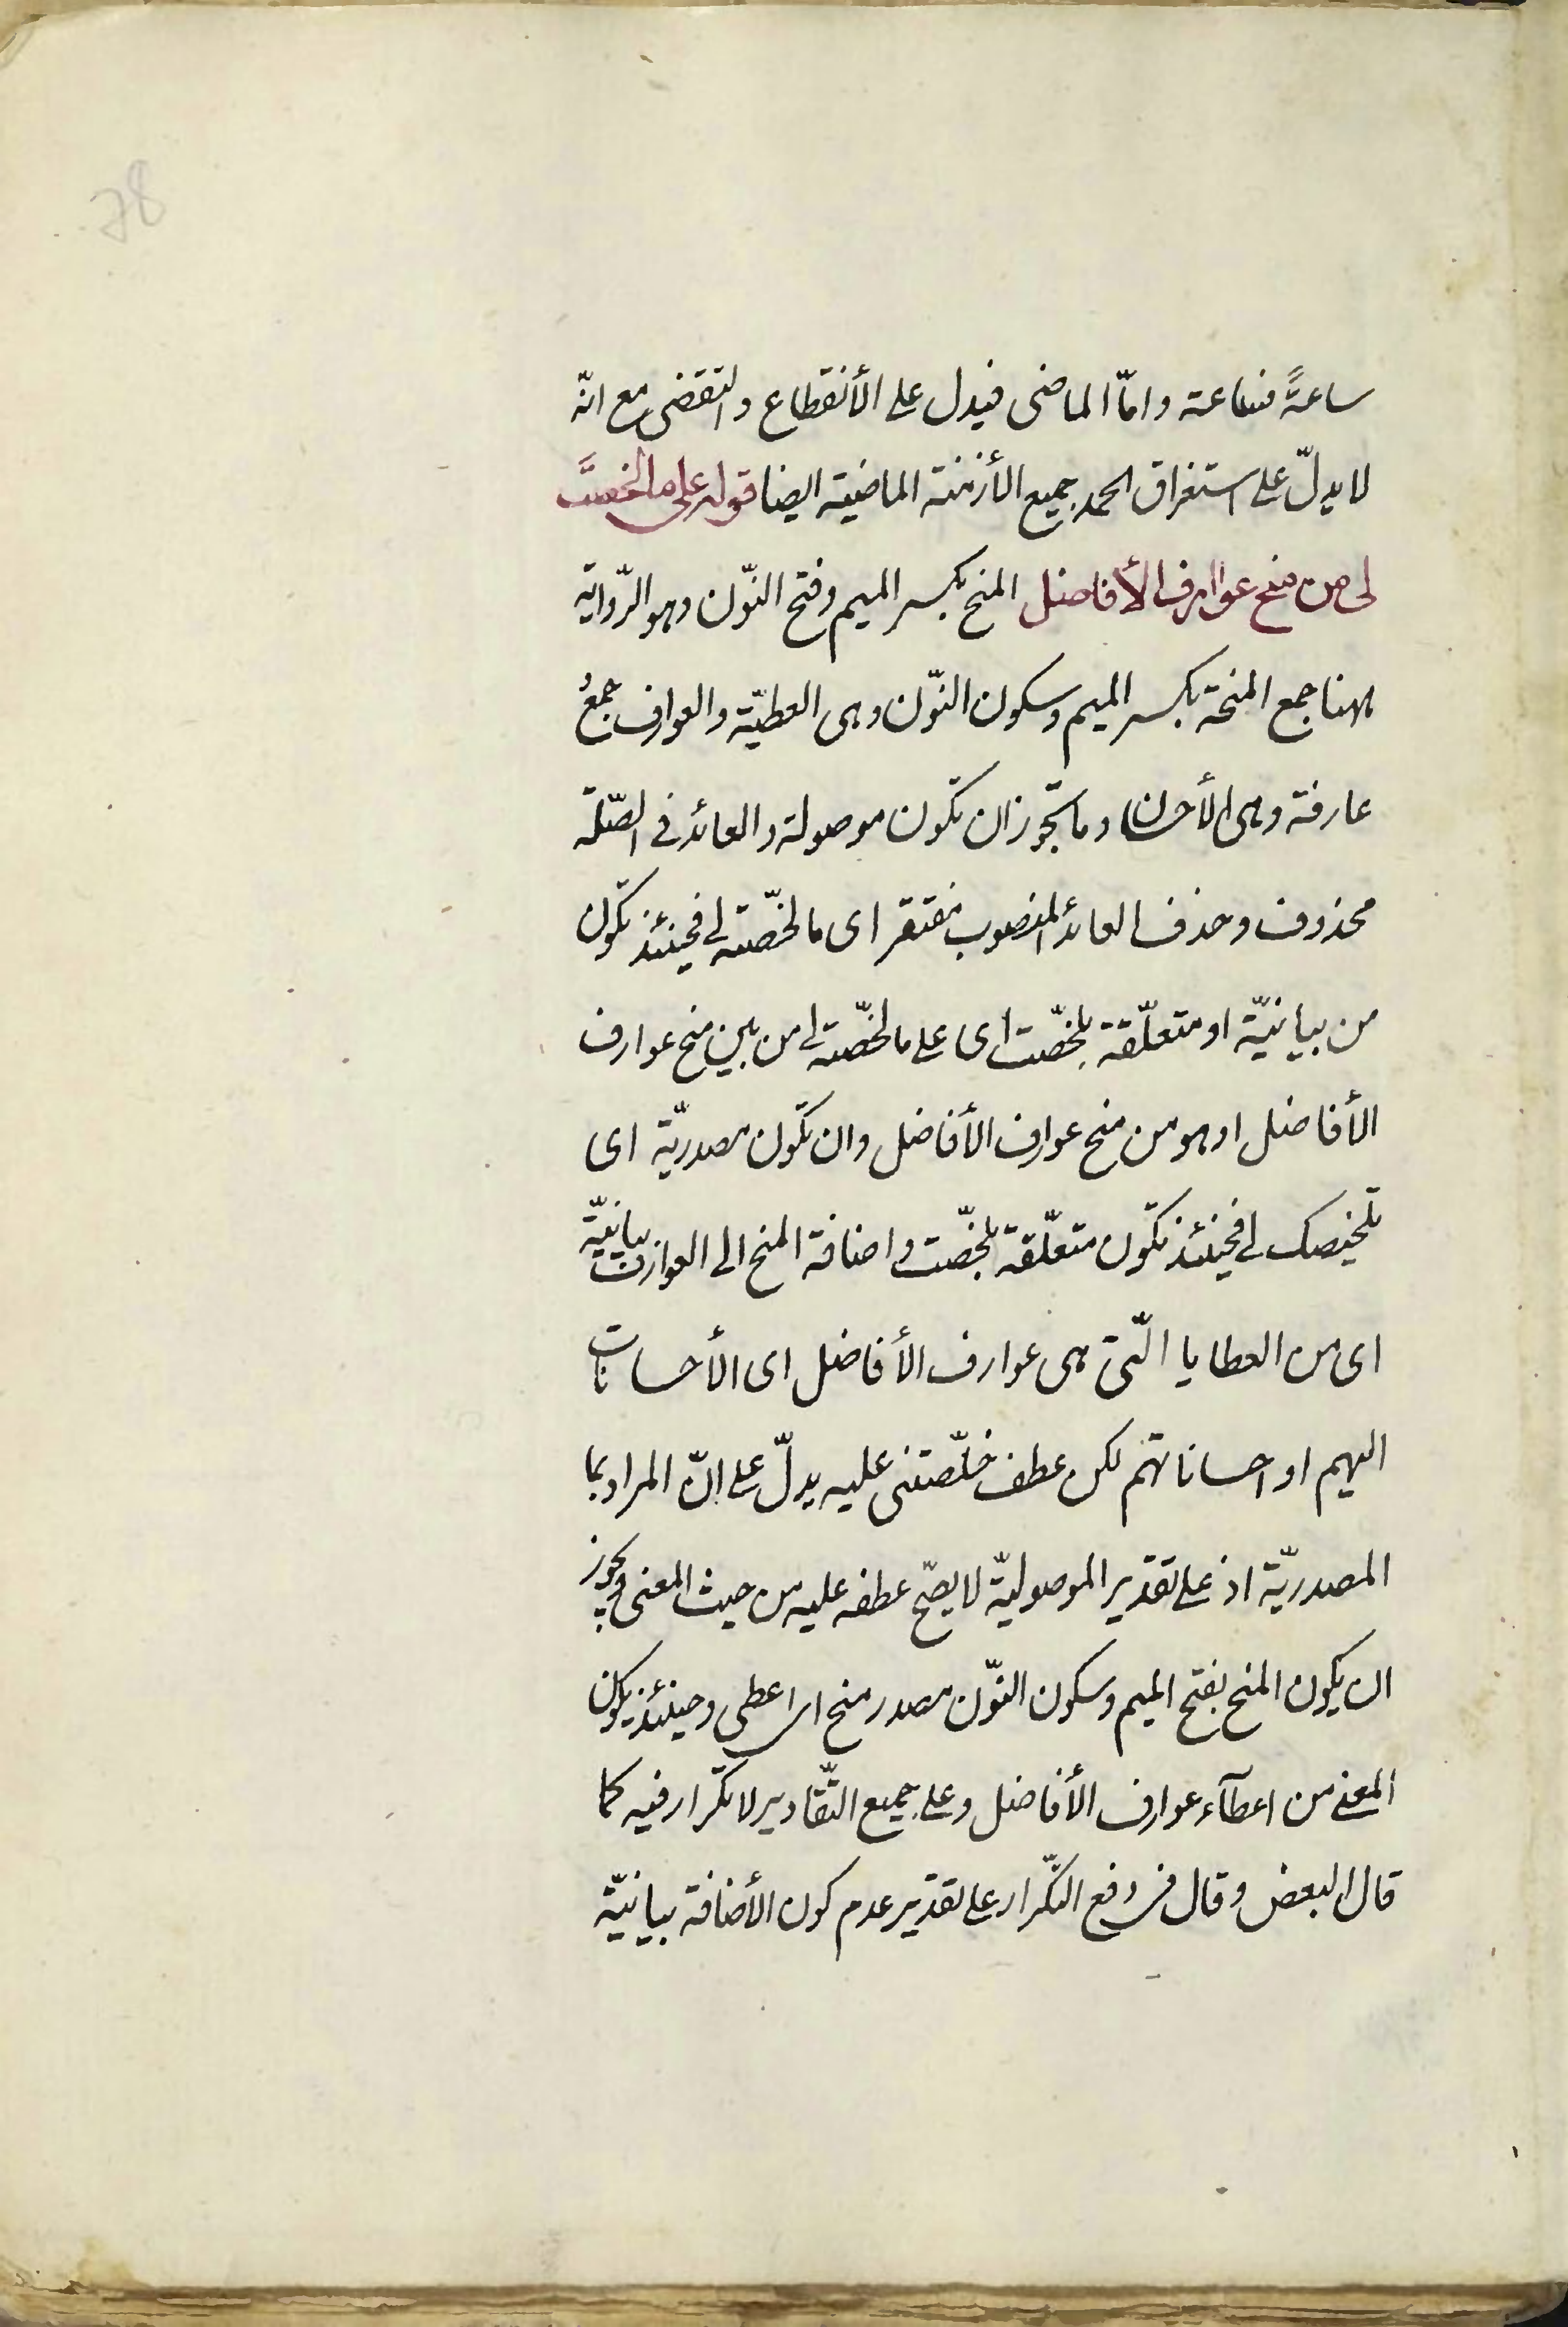 78
ساعةً فساعة وامّا الماضى فيدل على الأنقطاع والتقضى مع انّه
لا يدلّ على استغراق الحمد جميع الأزمنة الماضية ايضا قوله على ما لخصتَ
لى من منح عوارف الأفاضل المنح بكسر الميم وفتح النّون وهو الرّواية
ههنا جمع المنحة بكسر الميم وسكون النّون وهى العطيّة والعوارف جمعُ
عارفة وهى الأحسان وما يجوز ان تكون موصولة والعائد فى الصّلة
محذوف وحذف العائد المنصوب مفتقر اى ما لخّصته لى فحينئذ تكون
من بيانيّة او متعلّقة بلخّصت اى على ما لخّصته لى من بين منح عوارف
الأفاضل او هو من منح عوارف الأفاضل وان تكون مصدريّة اى
تلخيصك لى فحينئذ تكون متعلّقة بلخّصت واضافة المنح الى العوارف بيانيّة
اى من العطايا الّتى هى عوارف الأفاضل اى الأحسانات
اليهم او احساناتهم لكن عطف خلّصتنى عليه يدلّ على انّ المراد بما
المصدريّة اذ على تقدير الموصوليّة لا يصّح عطفه عليه من حيث المعنى ويجوز
ان يكون المنح بفتح الميم وسكون النّون مصدر منح اى اعطى وحينئذ يكون
المعنى من اعطآء عوارف الأفاضل وعلى جميع التّقادير لا تكرار فيه كما
قال البعض وقال فى دفع التّكرار على تقدير عدم كون الأضافة بيانيّة